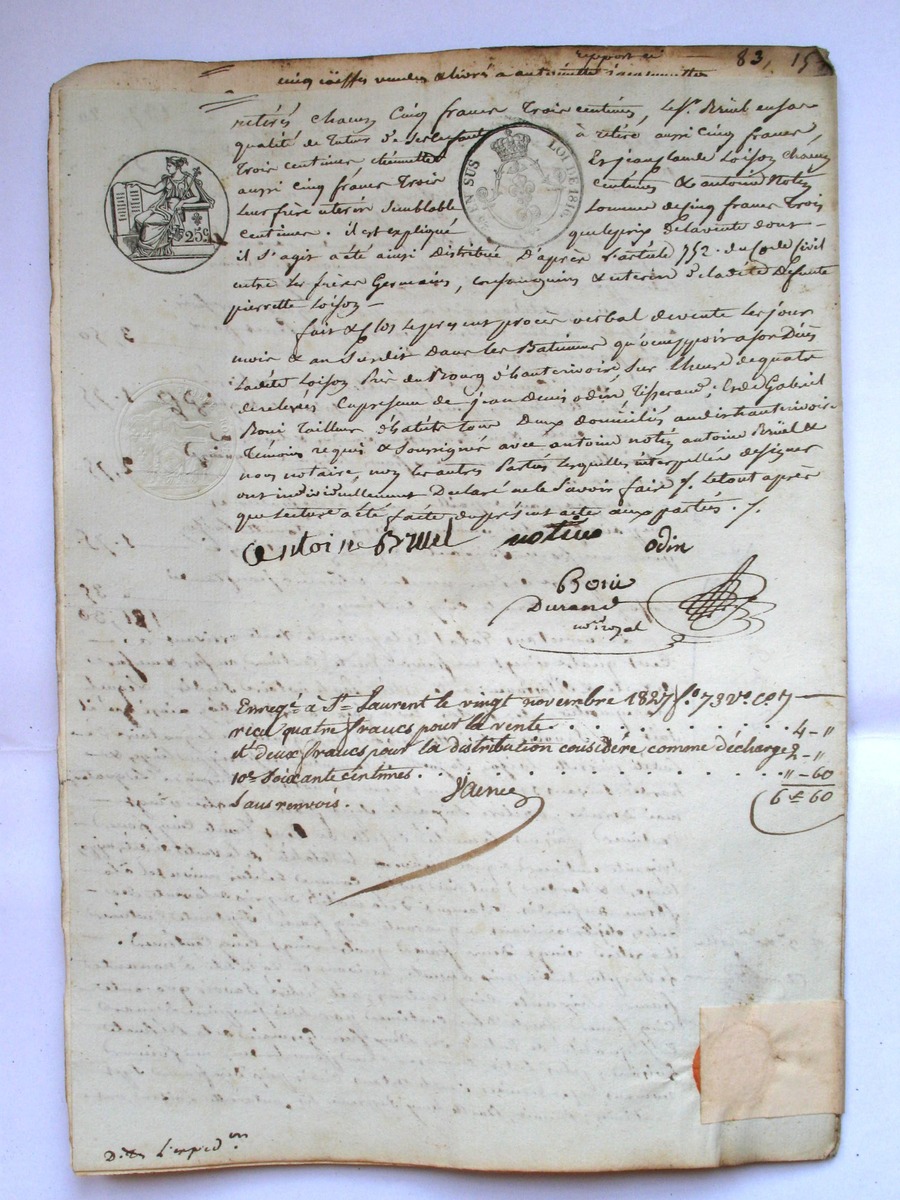 report ci 83, 15
cinq coëffes vendues
retirés chacun Cinq francs Trois centimes, Le Sr. Brüel en sa
qualité de Tuteur à retiré aussi Cinq francs,
Trois centimes Et jean Claude Loison chacun
aussi Cinq francs Trois centimes & antoine Notin
Leur frère uterin Semblable Somme de Cinq francs Trois
Centimes. il est expliqué que le prix De la vente dont
il S'agit a été ainsi Distribué D'après L'article 752. du Code Civil
entre Les frères Germains, consanguins & uterins De la dite Defunte
pierrette Loison
fait & Clos Le present procès verbal de vente Les jour
mois & an Susdit Dans les Batimens qu'occuppoit a son Décès
Ladite Loison Près du Bourg d'hauterivoire Sur L'heure de quatre
de relevée En presence de jean Denis odin, Tisserand, Et de Gabriel
Boni Tailleur D'habits tous Deux domiciliés audit hauterivoire
Témoins requis & Soussignés avec antoine notin antoine Brüel &
nous notaire, non les autres Parties Lesquelles interpellées de signer
ont individuellement Declaré ne le Savoir faire Le tout après
que Lecture a été faite du présent acte aux parties.
25c
EN SUS
LOI DE 1816
antoine Bruel notin odin
Boni
Durand
nre royal
Enregé à St Laurent le vingt novembre 1827 fo. 73 vo. co. 7
recu quatre francs pour la vente . . . 4 - "
et deux francs pour la distribution considéré comme décharge 2 - "
10e Soixante centimes . . . " - 60
Sans renvois. 6 f 60